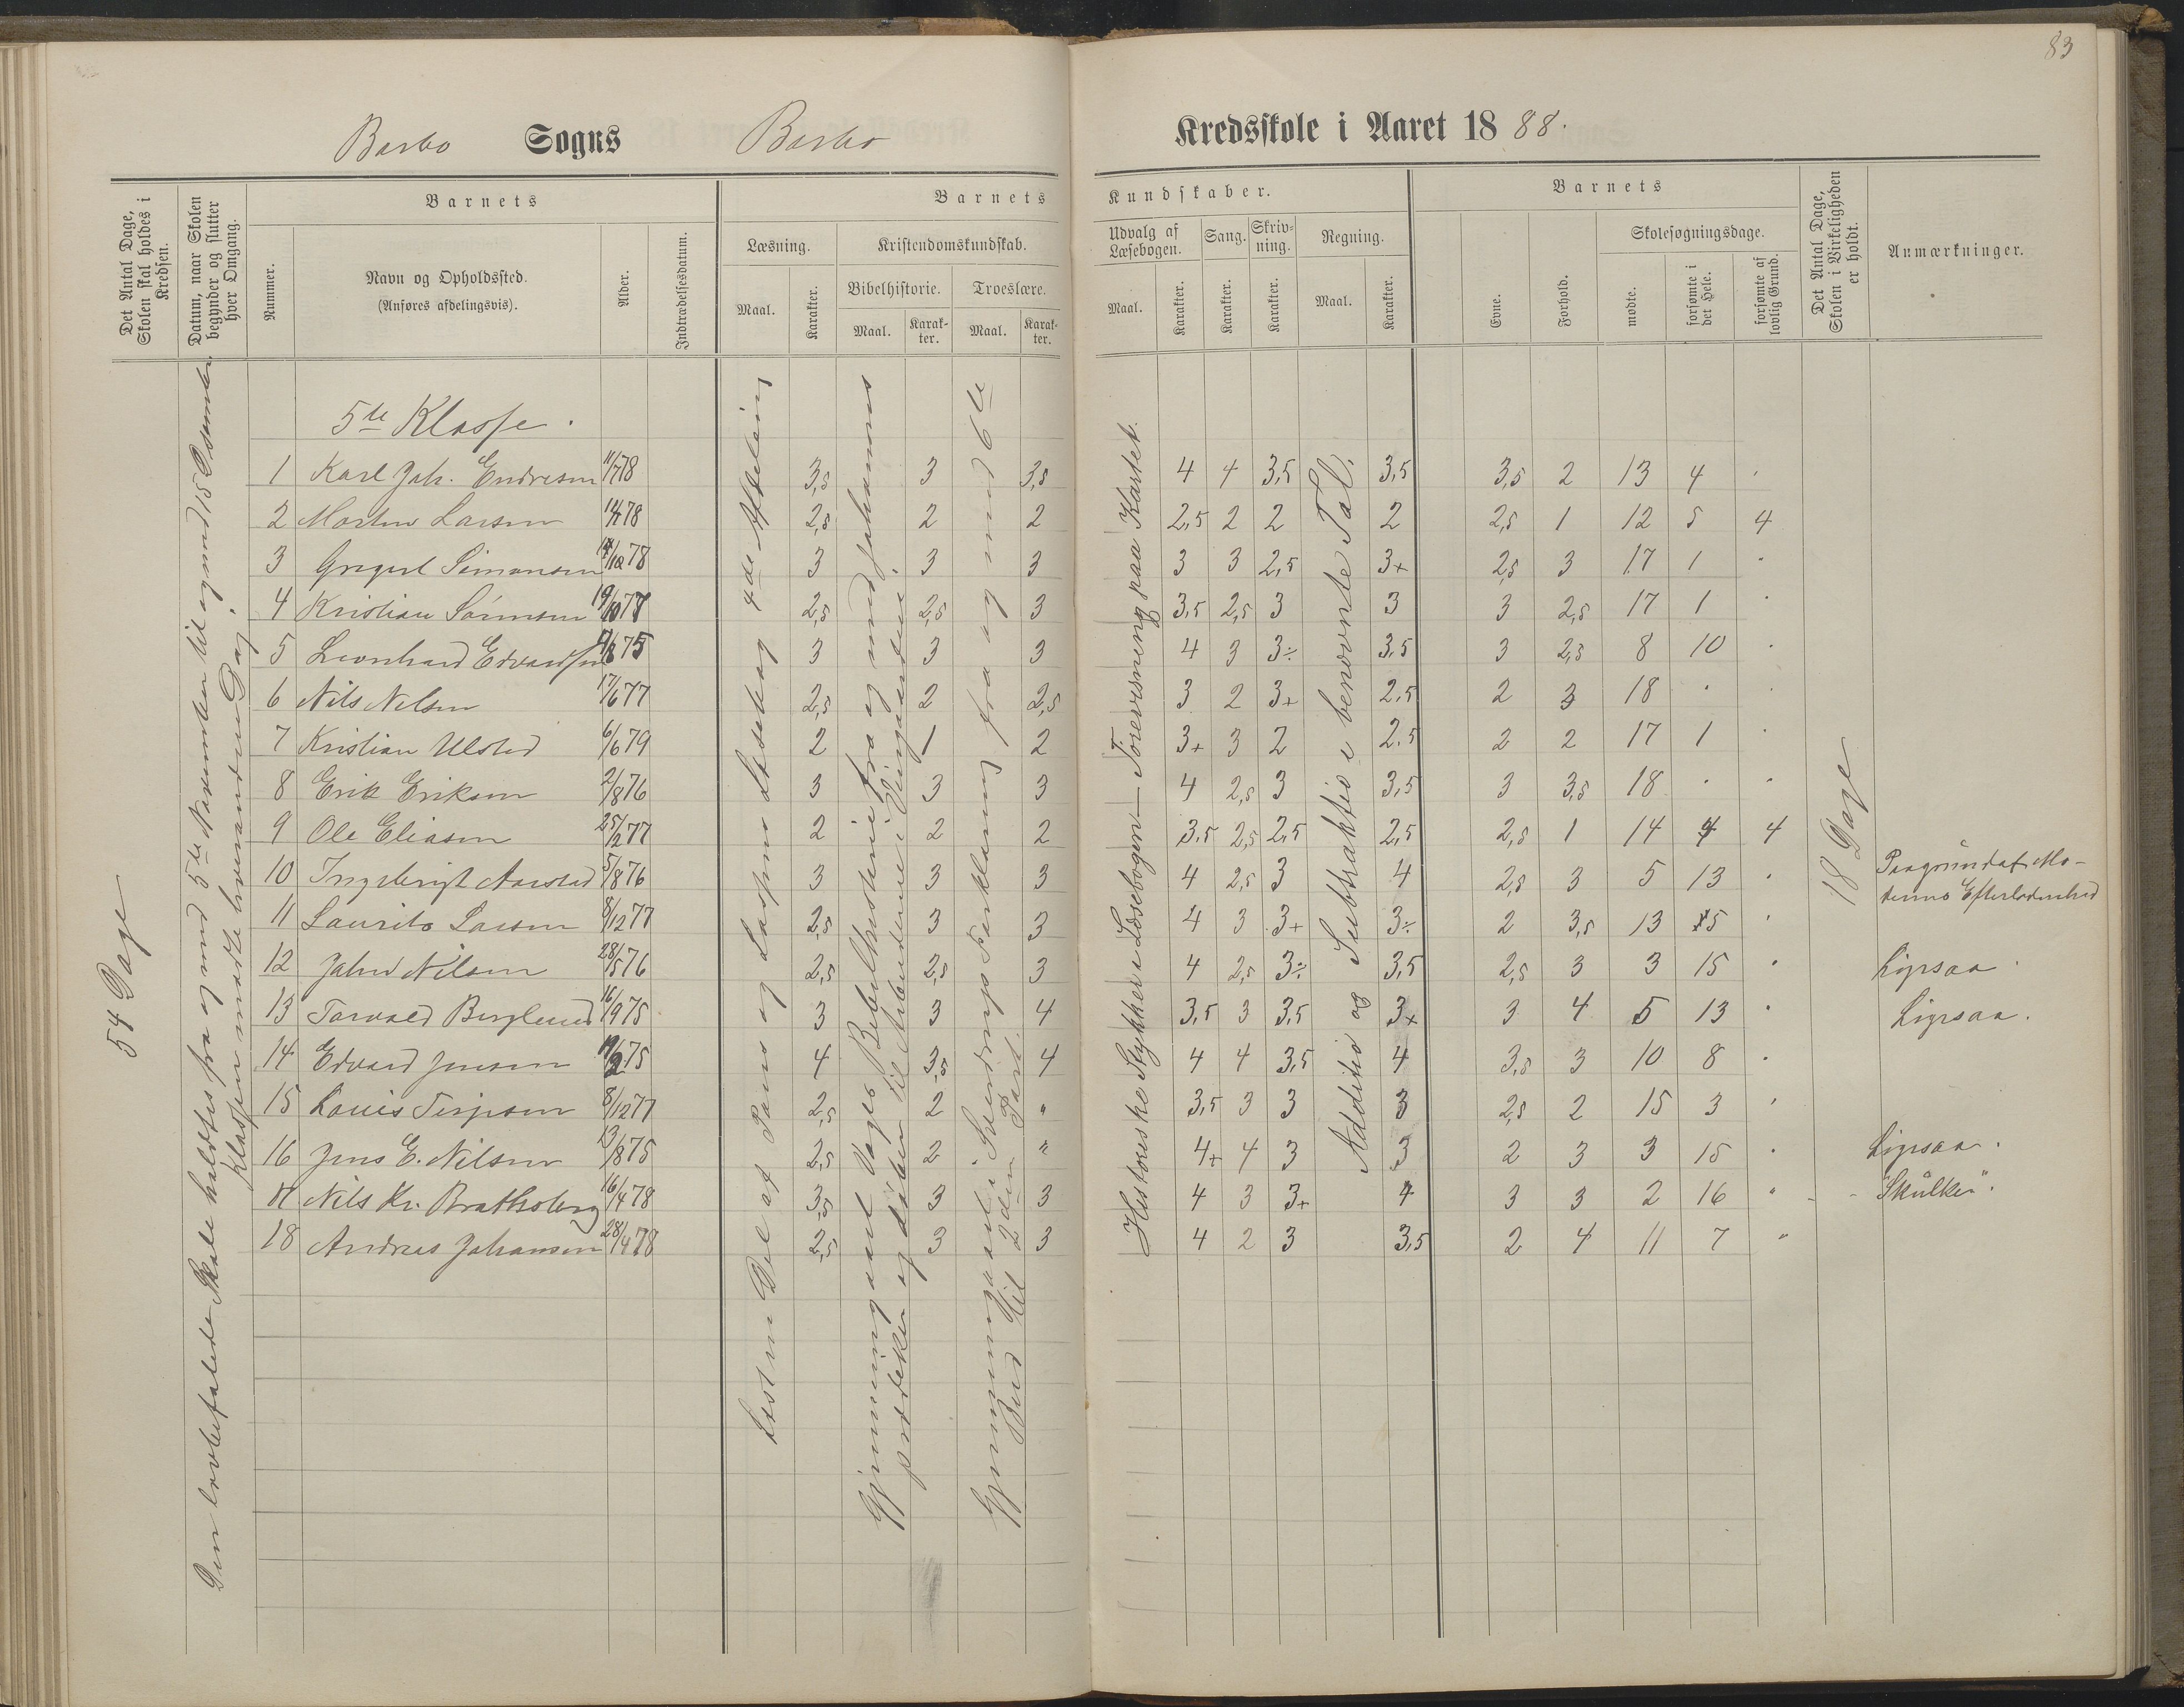 83
Barbo Sogns Barbo Kredsskole i Aaret 1888.
Det Antal Dage, Skolen skal holdes i Kredsen.
Datum, naar Skolen begynder og slutter hver Omgang.
Barnets
Nummer.
Navn og Opholdssted.
(Anføres afdelingsvis).
Alder.
Indtrædelsesdatum.
Barnets Kundskaber.
Læsning.
Maal. Karakter.
Kristendomskundskab.
Bibelhistorie. Troeslære.
Maal. Karakter. Maal. Karakter.
Udvalg af Læsebogen.
Maal. Karakter.
Sang.
Karakter.
Skrivning.
Karakter.
Regning.
Maal. Karakter.
Barnets
Evne.
Forhold.
Skolesøgningsdage.
mødte.
forsømte i det Hele.
forsømte af lovlig Grund.
Det Antal Dage, Skolen i Virkeligheden er holdt.
Anmærkninger.
54 Dage
Den lovbefalede Skole holdtes fra og med 5te November til og med 15 December
Klassen mødte hverandren Dag.
Største Del af Pauss og Lassens Læsebog 4de Afdeling
Gjennemgaaet Vogts Bibelhistorie fra og med Johannes
prædiker og døber til Arbeiderne i Vingaarden.
Gjennemgaaet i Sverdrups Forklaring fra og med 6te
Bud til 2den Part.
Historiske Stykker i Læsebogen – Forevisning paa Kartet.
Addition og Subtraktion i benævnte Tal.
18 Dage
5te Klasse.
1 Karl Joh. Endresen 11/7 78 3,5 3 3,5 4 4 3,5 3,5 3,5 2 13 4
2 Morten Larsen 78 2,5 2 2 2,5 2 2 2 2,5 1 12 5 4
3 Gregert Simonsen 78 3 3 3 3 3 2,5 3+ 2,5 3 17 1
4 Kristian Sørensen 19/10 77 2,5 2,5 3 3,5 2,5 3 3 3 2,5 17 1
5 Leonhard Edvardsen 75 3 3 3 4 3 3÷ 3,5 3 2,5 8 10
6 Nils Nilsen 17/6 77 2,5 2 2,5 3 2 3+ 2,5 2 3 18
7 Kristian Ulsted 6/6 79 2 1 2 3+ 3 2 2,5 2 2 17 1
8 Erik Eriksen 2/8 76 3 3 3 4 2,5 3 3,5 3 3,5 18
9 Ole Eliasen 25/2 77 2 2 2 3,5 2,5 2,5 2,5 2,5 1 14 4 4
10 Ingebrigt Aarstad 5/8 76 3 3 3 4 2,5 3 4 2,5 3 5 13 Paa grund af Mo-
derens Efterladenhed
11 Laurits Larsen 8/12 77 2,5 3 3 4 3 3+ 3÷ 2 3,5 13 5
12 John Nilsen 28/5 76 2,5 2,5 3 4 2,5 3÷ 3,5 2,5 3 3 15 Ligesaa.
13 Torvald Berglund 16/9 75 3 3 4 3,5 3 3,5 3+ 3 4 5 13 Ligesaa.
14 Edvard Jensen 75 4 3,5 4 4 4 3,5 4 3,5 3 10 8
15 Louis Terjesen 8/12 77 2,5 2 " 3,5 3 3 3 2,5 2 15 3
16 Jens E. Nilsen 13/8 75 2,5 2 " 4+ 4 3 3 2 3 3 15 Ligesaa.
17 Nils Kr. Bratksberg 16/4 78 3,5 3 3 4 3 3+ 4 3 3 2 16 " - - "Skulker".
18 Andreas Johansen 28/4 78 2,5 3 3 4 2 3 3,5 2 4 11 7 "